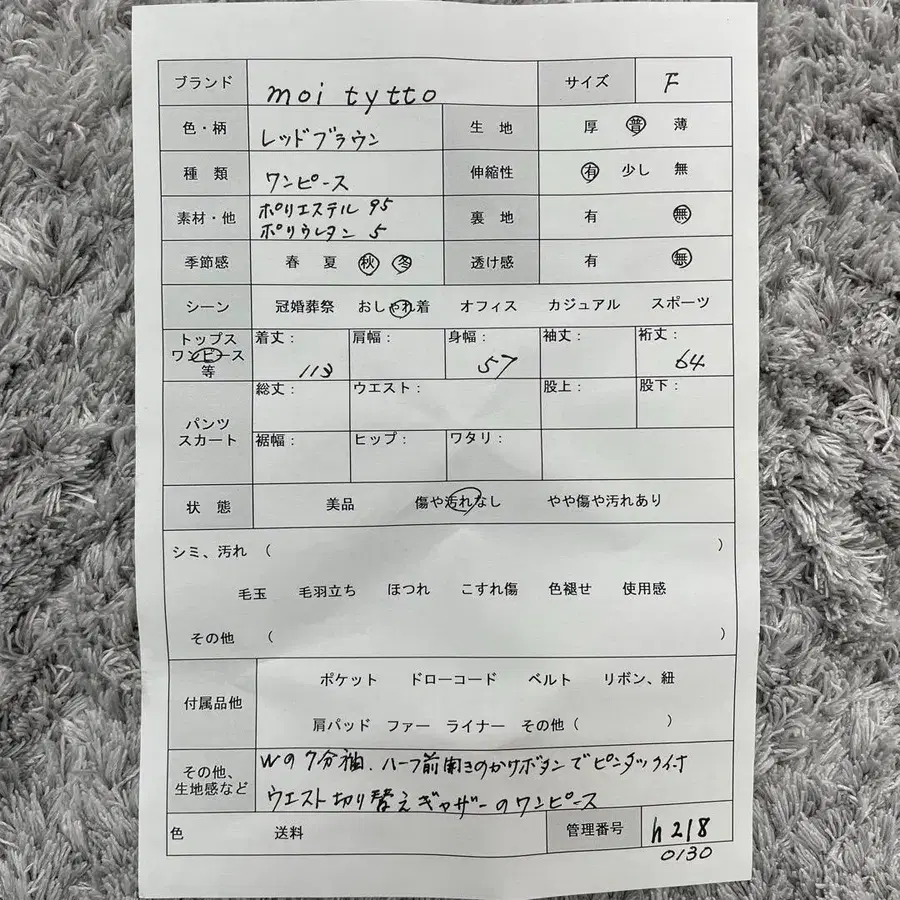 ブランド moi tytto サイズ F
色・柄 レッドブラウン 生 地 厚 普 薄
種 類 ワンピース 伸縮性 有 少し 無
素材・他 ポリエステル 95 裏 地 有 無
ポリウレタン 5
季節感 春 夏 秋 冬 透け感 有 無
シーン 冠婚葬祭 おしゃれ着 オフィス カジュアル スポーツ
トップス 着丈: 肩幅: 身幅: 袖丈: 裄丈:
ワンピース
等 113 57 64
パンツ 総丈: ウエスト: 股上: 股下:
スカート 裾幅: ヒップ: ワタリ:
状 態 美品 傷や汚れなし やや傷や汚れあり
シミ、汚れ ( )
毛玉 毛羽立ち ほつれ こすれ傷 色褪せ 使用感
その他 ( )
付属品他 ポケット ドローコード ベルト リボン、紐
肩パッド ファー ライナー その他 ( )
その他、 Wの7分袖、ハーフ前開きのかけボタンでピンタック付
生地感など ウエスト切り替えギャザーのワンピース
色 送料 管理番号 h218
0130